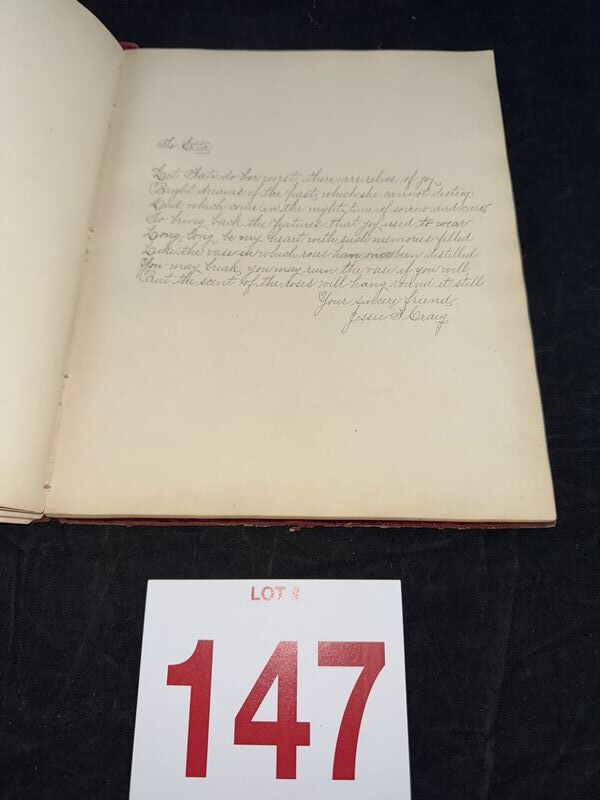 To Etta
Let Fate do her worst, there are relics of joy
Bright dreams of the past, which she cannot destroy
And which come in the night, time of sorrow and care
To bring back the features that joy used to wear
Long, long be my heart with such memories filled
Like the vase in which roses have once been distilled
You may break, you may ruin the vase if you will
But the scent of the roses will hang round it still
Your sincere friend,
Jessie Craig
LOT #
147